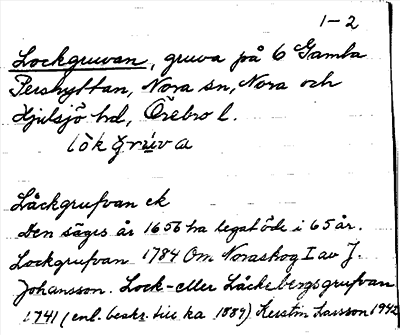 1-2
Lockgruvan, gruva på 6 Gamla
Pershyttan, Nora sn, Nora och
Hjulsjö hd, Örebro l.
lòk grùva
Låckgrufvan ek
Den säges år 1656 ha legat öde i 65 år.
Lockgrufvan 1784 Om Noraskog I av J.
Johansson. Lock- eller Låckebergsgrufvan
1741 (enl. beskr. till ka 1889) Kerstin Larsson 1942